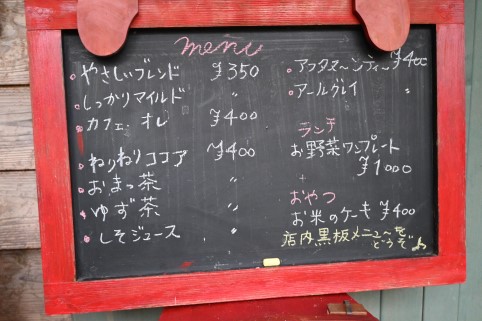 menu
・やさしいブレンド ¥350
・しっかりマイルド 〃
・カフェ・オレ ¥400
・ねりねりココア ¥400
・おまっ茶 〃
・ゆず茶 〃
・しそジュース 〃
・アフタヌーンティー ¥400
・アールグレイ 〃
ランチ
お野菜ワンプレート
¥1000
+
おやつ
お米のケーキ ¥400
店内黒板メニューも
どうぞ♪